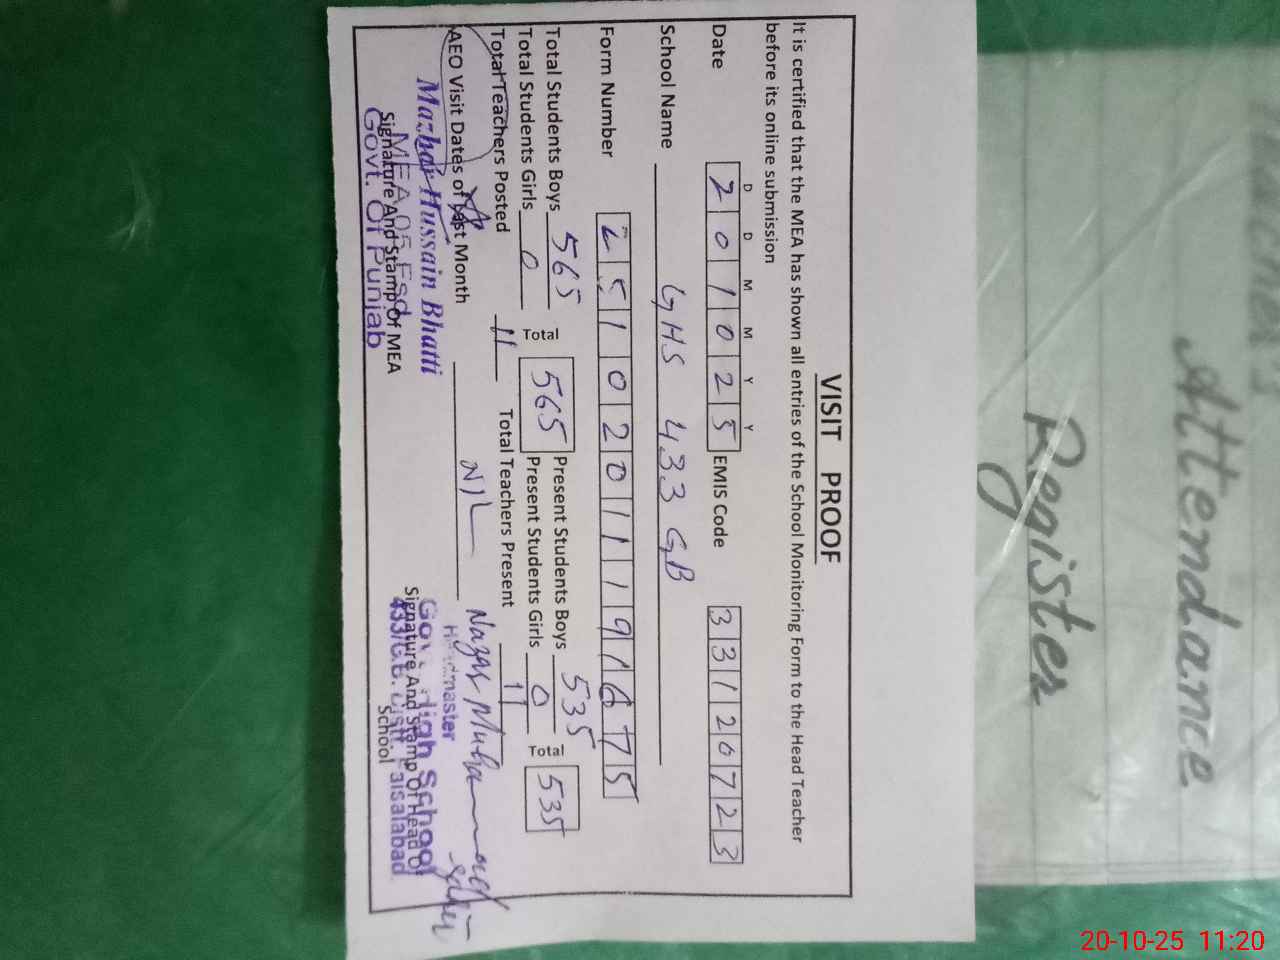 VISIT PROOF
It is certified that the MEA has shown all entries of the School Monitoring Form to the Head Teacher
before its online submission
D D M M Y Y
Date 2 0 1 0 2 5 EMIS Code 3 3 1 2 0 7 2 3
School Name GHS 433 GB
Form Number 2 5 1 0 2 0 1 1 1 9 1 6 7 5
Total Students Boys 565 Total 565 Present Students Boys 535 Total 535
Total Students Girls 0 Present Students Girls 0
Total Teachers Posted 11 Total Teachers Present 11
AEO Visit Dates of Last Month NIL
Mazhar Hussain Bhatti
MEA 05 Fsd
Signature And Stamp Of MEA
Govt. Of Punjab
Headmaster
Govt. High School
Signature And Stamp Of Head Of
433/G.B. Distt. Faisalabad
School
Attendance
Register
20-10-25 11:20